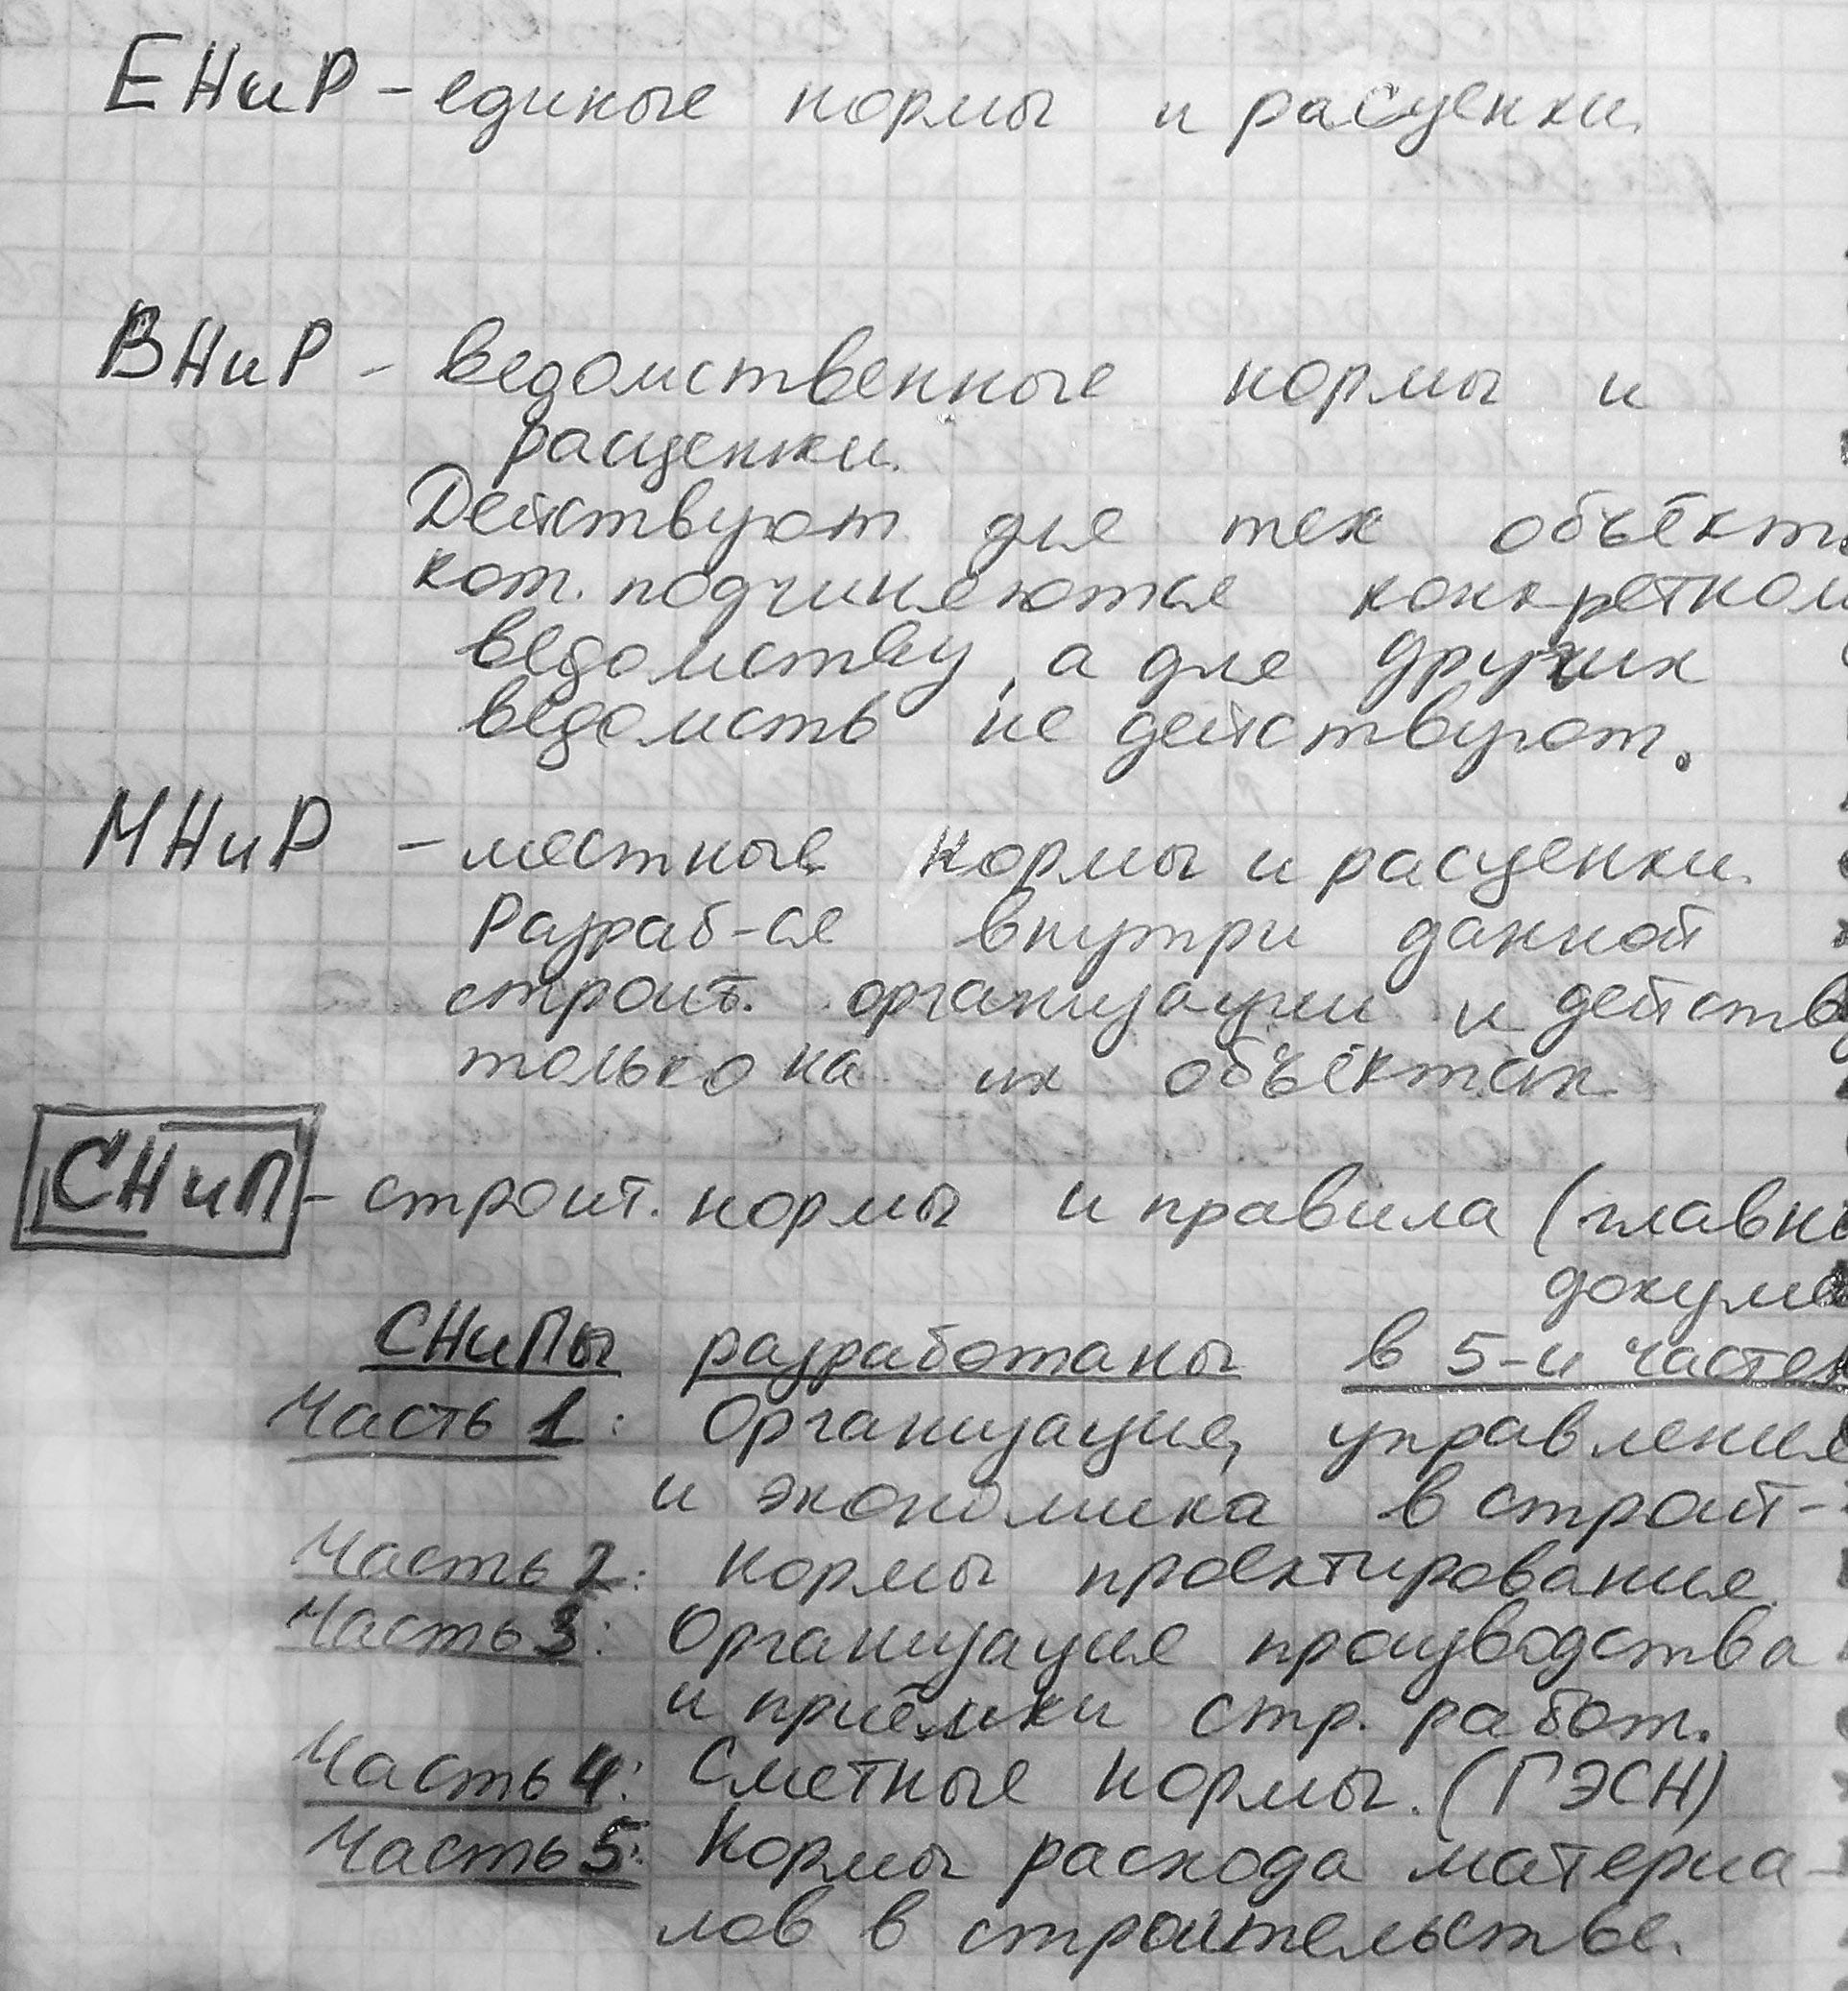 ЕНиР - единые нормы и расценки.
ВНиР - ведомственные нормы и
расценки.
Действуют для тех объект
кот. подчиняются конкретном
ведомству, а для других
ведомств не действуют.
МНиР - местные нормы и расценки.
Разраб-ся внутри данной
строит. организации и действ
только на их объектах
СНиП - строит. нормы и правила (главн
докуме
СНиПы разработаны в 5-и частях
Часть 1: Организация, управление
и экономика в строит-
Часть 2: Нормы проектирования.
Часть 3: Организация производства
и приёмки стр. работ.
Часть 4: Сметные нормы. (ГЭСН)
Часть 5: Нормы расхода материа-
лов в строительстве.